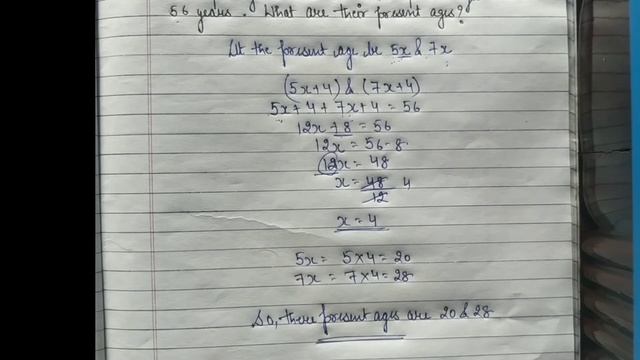 56 years. What are their present ages?
Let the present age be 5x & 7x
(5x+4) & (7x+4)
5x+4+7x+4=56
12x+8=56
12x=56-8
12x=48
x=48/12 4
x=4
5x= 5×4=20
7x= 7×4=28
So, there present ages are 20 & 28